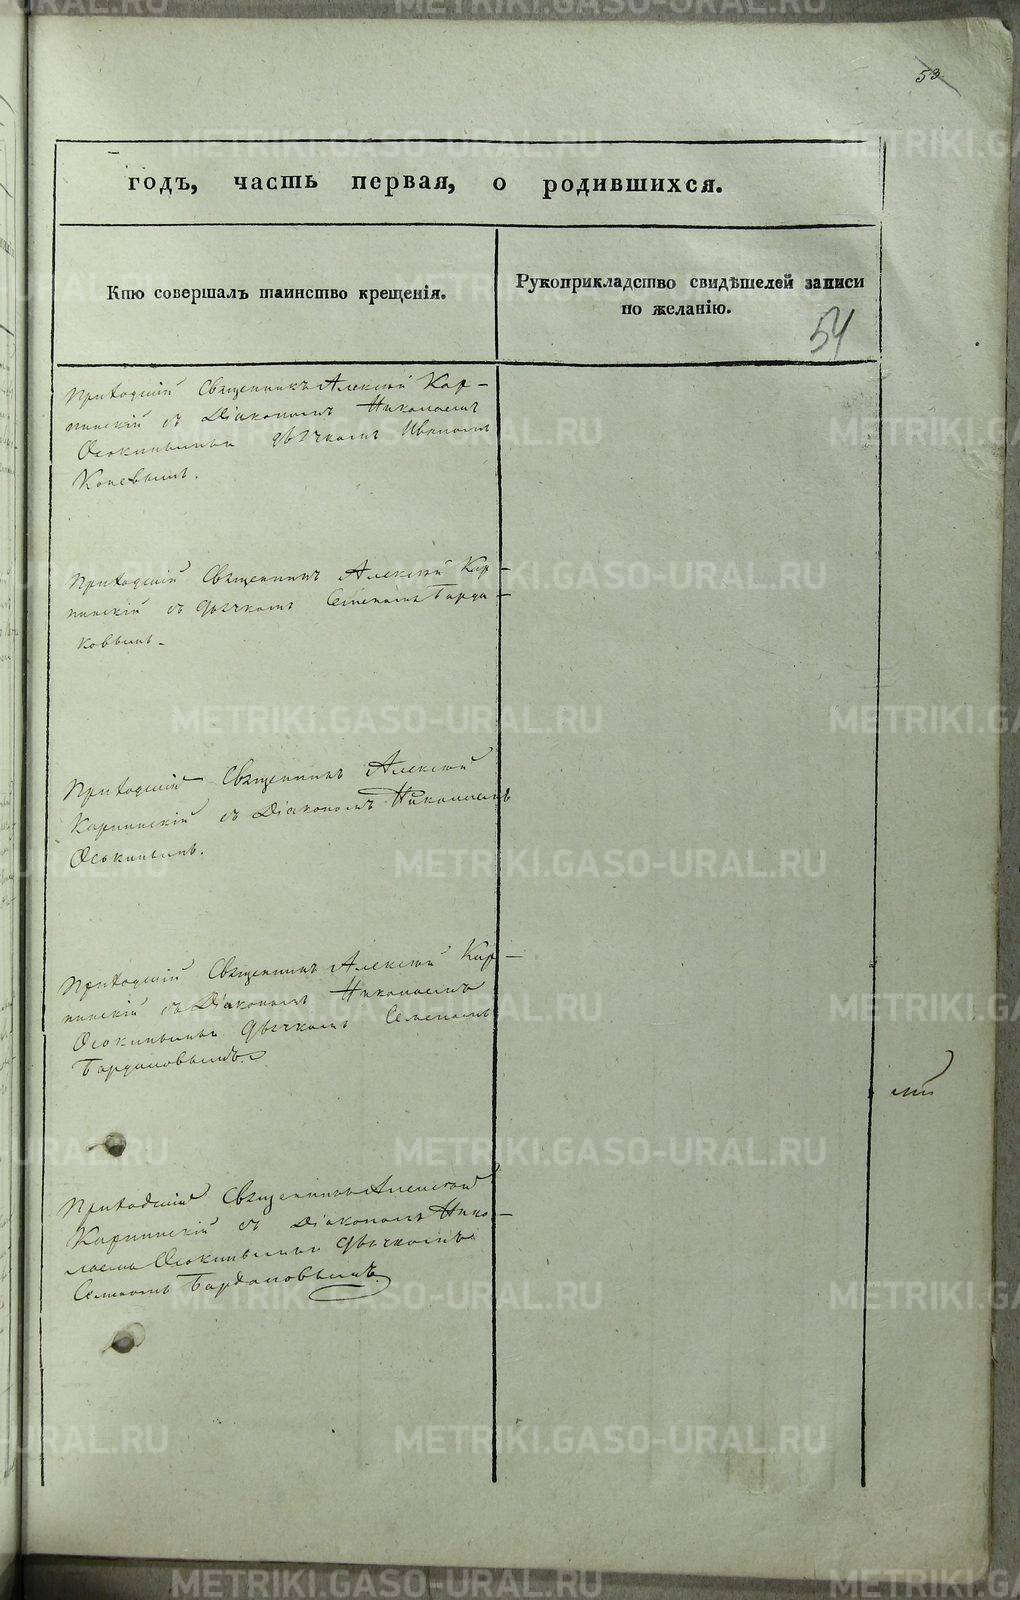 53.
годъ, часть первая, о родившихся.
Кто совершалъ таинство крещенія.
Рукоприкладство свидѣтелей записи
по желанію.
54
Приходскій Священникъ Алексій Кар-
пинскій съ Діакономъ Николаемъ
Осокинымъ и дьячкомъ Иваномъ
Приходскій Священникъ Алексій Кар-
пинскій съ дьячкомъ Семеномъ Бардa-
ковымъ.
Приходскій Священникъ Алексій
Карпинскій съ Діакономъ Николаемъ
Осокинымъ.
Приходскій Священникъ Алексій Кар-
пинскій съ Діакономъ Николаемъ
Осокинымъ и дьячкомъ Семеномъ
Бардаковымъ.
Приходскій Священникъ Алексій
Карпинскій съ Діакономъ Нико-
лаемъ Осокинымъ и дьячкомъ
Семеномъ Бардаковымъ.
METRIKI.GASO-URAL.RU